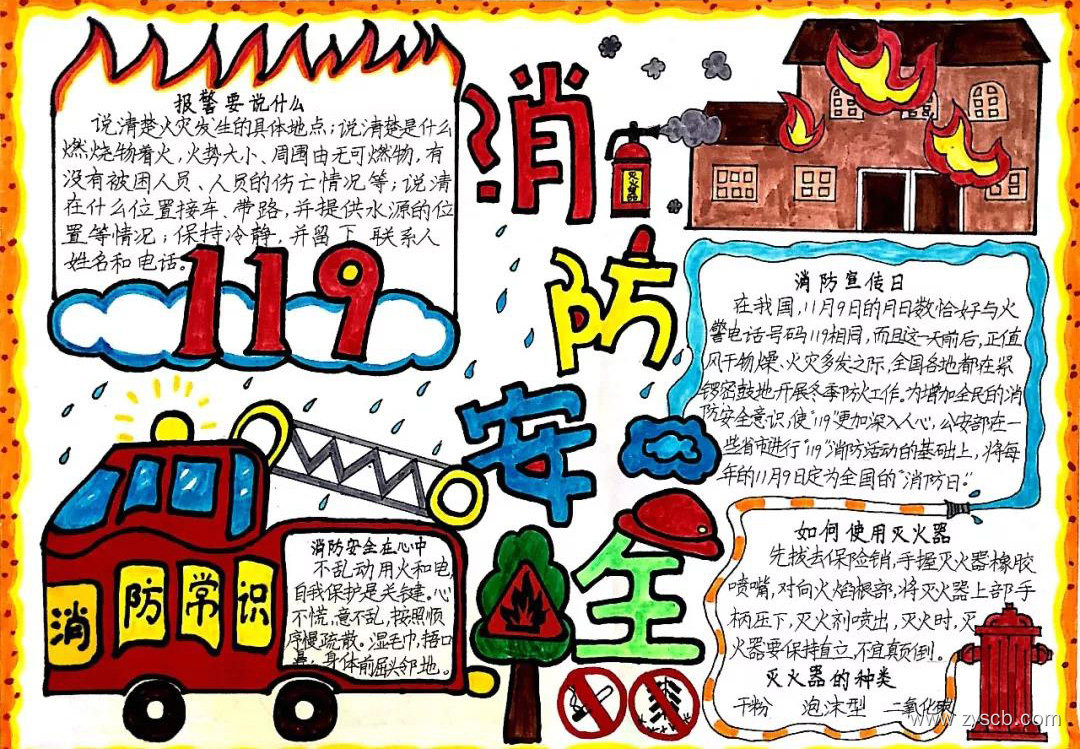 报警要说什么
说清楚火灾发生的具体地点;说清楚是什么
燃烧物着火,火势大小、周围由无可燃物,有
没有被困人员、人员的伤亡情况等;说清
在什么位置接车、带路,并提供水源的位
置等情况;保持冷静,并留下联系人
姓名和电话。
119
消
防
安
全
灭火器
消防宣传日
在我国,11月9日的月日数恰好与火
警电话号码119相同,而且这一天前后,正值
风干物燥、火灾多发之际,全国各地都在紧
锣密鼓地开展冬季防火工作。为增加全民的消
防安全意识,使"119"更加深入人心,公安部在一
些省市进行"119"消防活动的基础上,将每
年的11月9日定为全国的"消防日"。
消防常识
消防安全在心中
不乱动用火和电,
自我保护是关键。心
不慌,意不乱,按照顺
序慢疏散。湿毛巾,捂口
鼻,身体前屈头邻地。
如何使用灭火器
先拔去保险销,手握灭火器橡胶
喷嘴,对向火焰根部,将灭火器上部手
柄压下,灭火剂喷出,灭火时,灭
火器要保持直立,不宜颠倒。
灭火器的种类
干粉 泡沫型 二氧化碳
www.zyscb.com